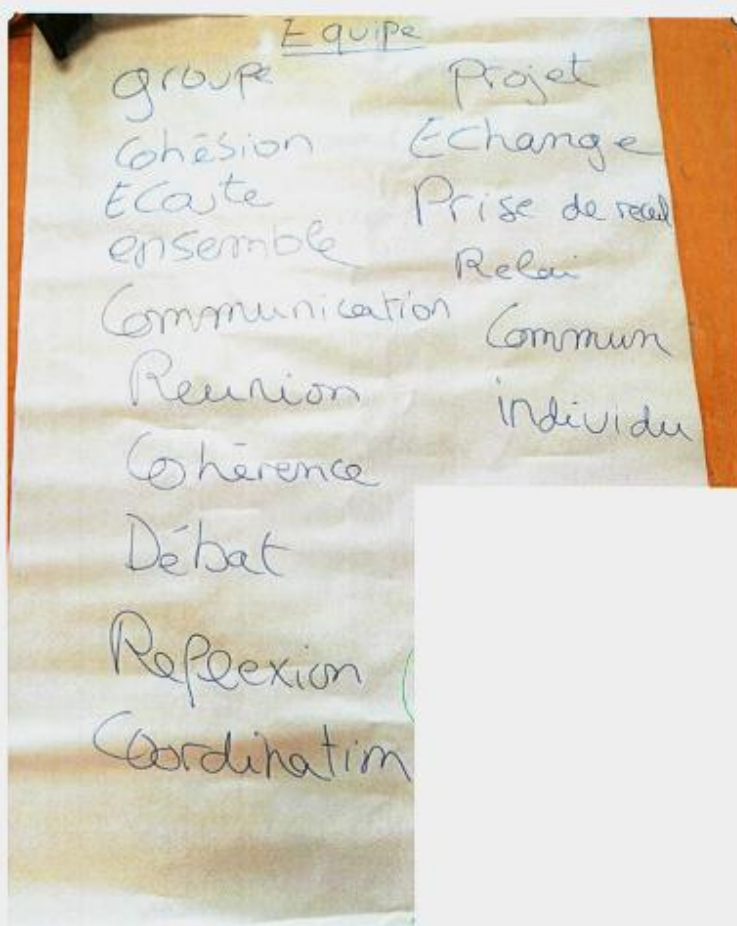 Equipe
groupe
Cohésion
Ecoute
ensemble
Communication
Reunion
Cohérence
Débat
Reflexion
Coordination
Projet
Echange
Prise de recul
Relai
Commun
individu